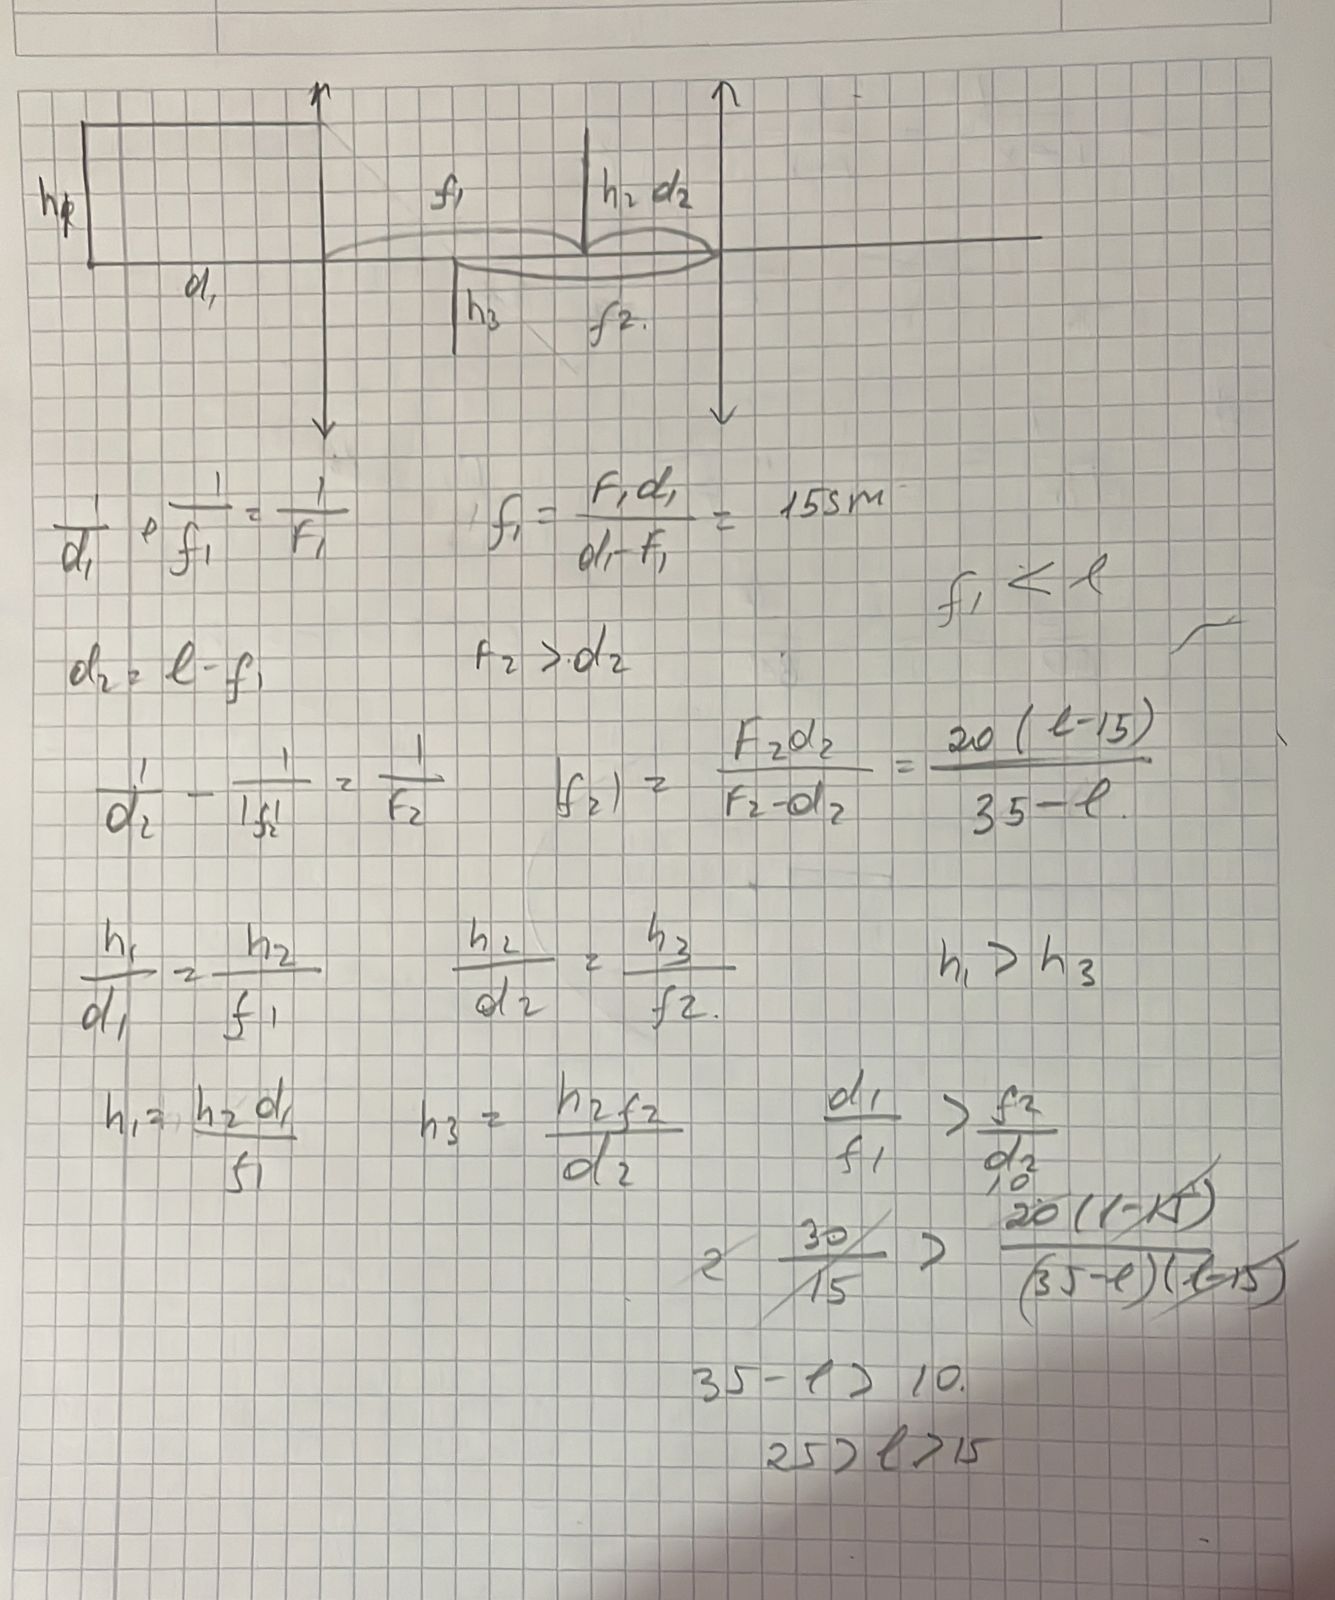 h₁
d₁
f₁
h₂ d₂
h₃
f₂.
1/d₁ + 1/f₁ = 1/F₁    f₁ = F₁d₁/(d₁-F₁) = 15sm
f₁ < l
d₂ = l - f₁    F₂ > d₂
1/d₂ - 1/|f₂| = 1/F₂    |f₂| = F₂d₂/(F₂-d₂) = 20(l-15)/(35-l).
h₁/d₁ = h₂/f₁    h₂/d₂ = h₃/f₂.    h₁ > h₃
h₁ = h₂d₁/f₁    h₃ = h₂f₂/d₂    d₁/f₁ > f₂/d₂
2 30/15 > 10 20(l-15)/(35-l)(l-15)
35 - l > 10.
25 > l > 15